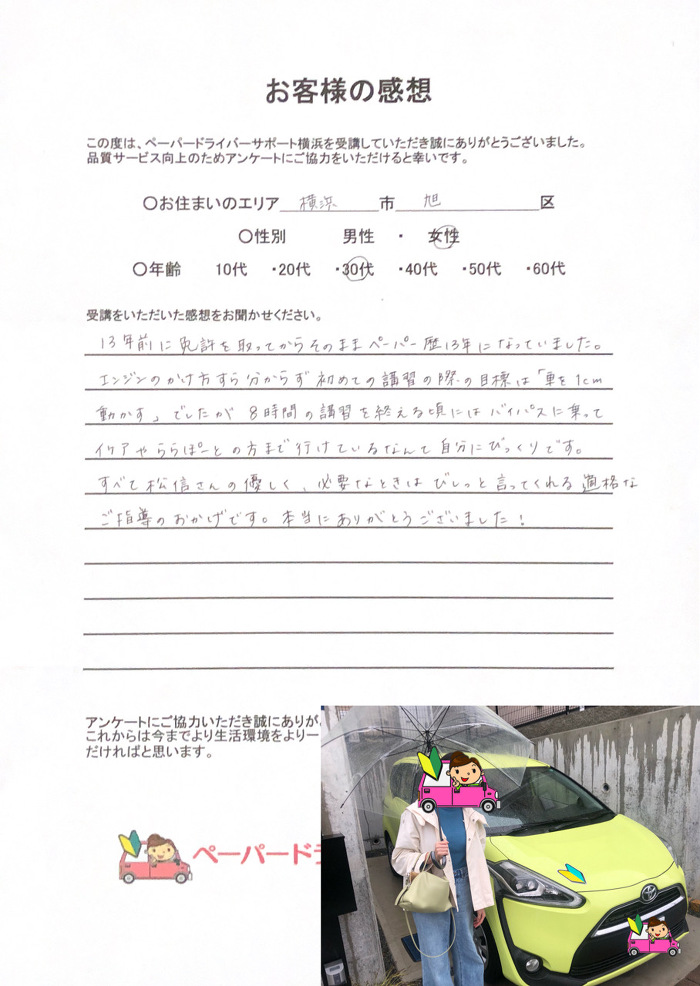 お客様の感想
この度は、ペーパードライバーサポート横浜を受講していただき誠にありがとうございました。
品質サービス向上のためアンケートにご協力をいただけると幸いです。
〇お住まいのエリア 横浜 市 旭 区
〇性別 男性 ・ 女性
〇年齢 10代 ・20代 ・30代 ・40代 ・50代 ・60代
受講をいただいた感想をお聞かせください。
13年前に免許を取ってからそのままペーパー歴13年になっていました。
エンジンのかけ方すら分からず初めての講習の際の目標は「車を1cm
動かす」でしたが8時間の講習を終える頃にはバイパスに乗って
イケアやららぽーとの方まで行けているなんて自分にびっくりです。
すべて松信さんの優しく、必要なときはびしっと言ってくれる適格な
ご指導のおかげです。本当にありがとうございました!
アンケートにご協力いただき誠にありが
これからは今までより生活環境をより一
だければと思います。
ペーパードラ